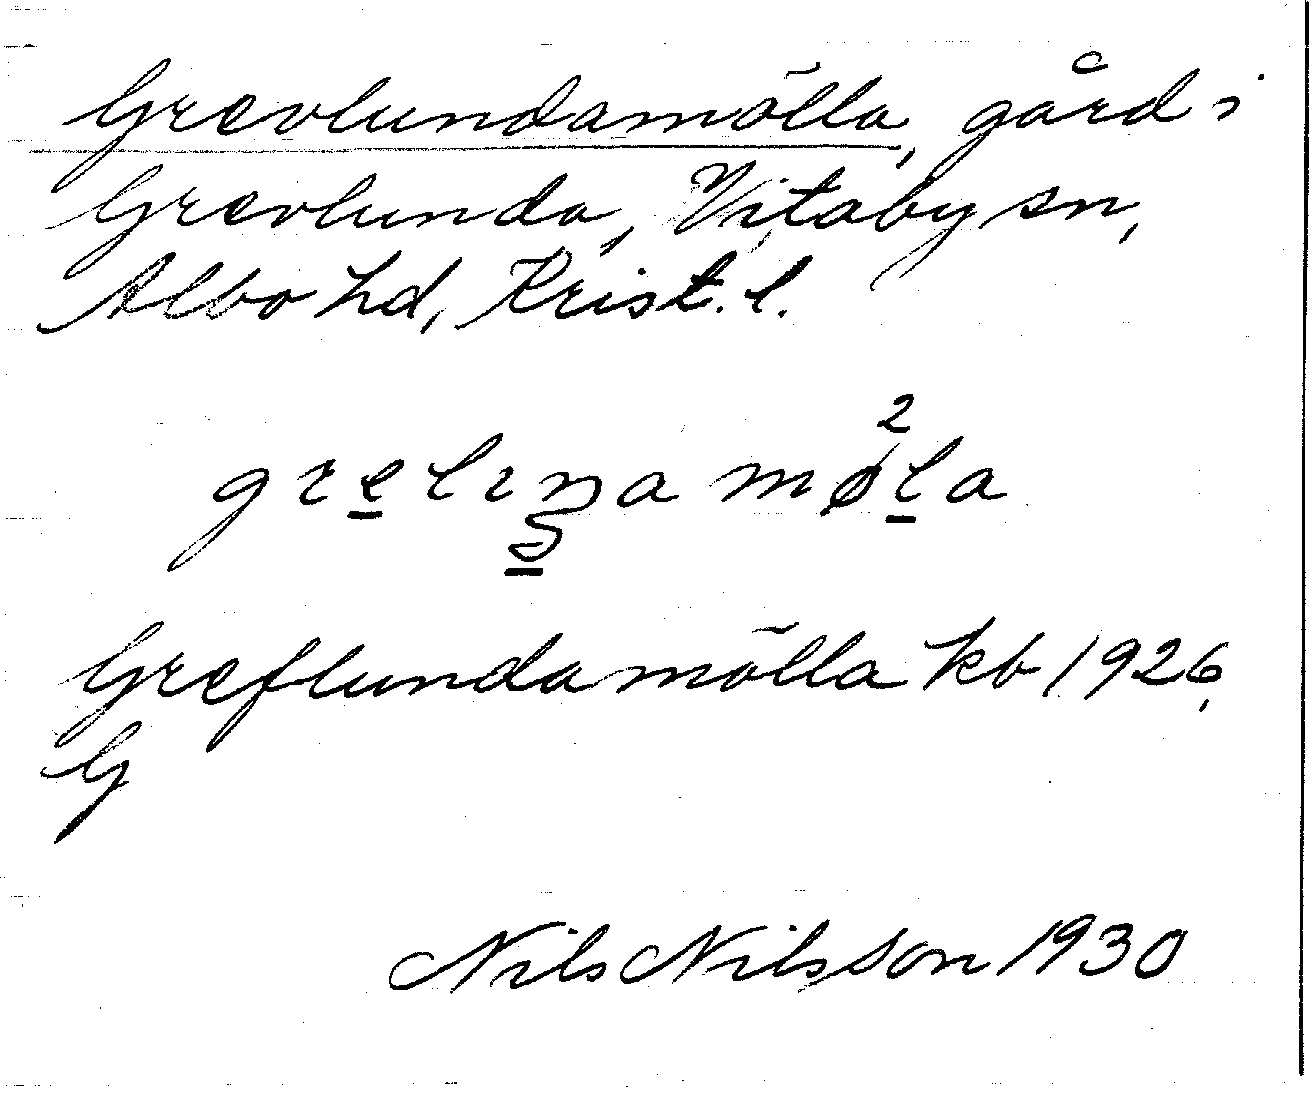 Grevlundamölla, gård i
Grevlunda, Vitaby sn,
Albo hd, Krist. l.
Greflundamölla kb 1926,
G
Nils Nilsson 1930